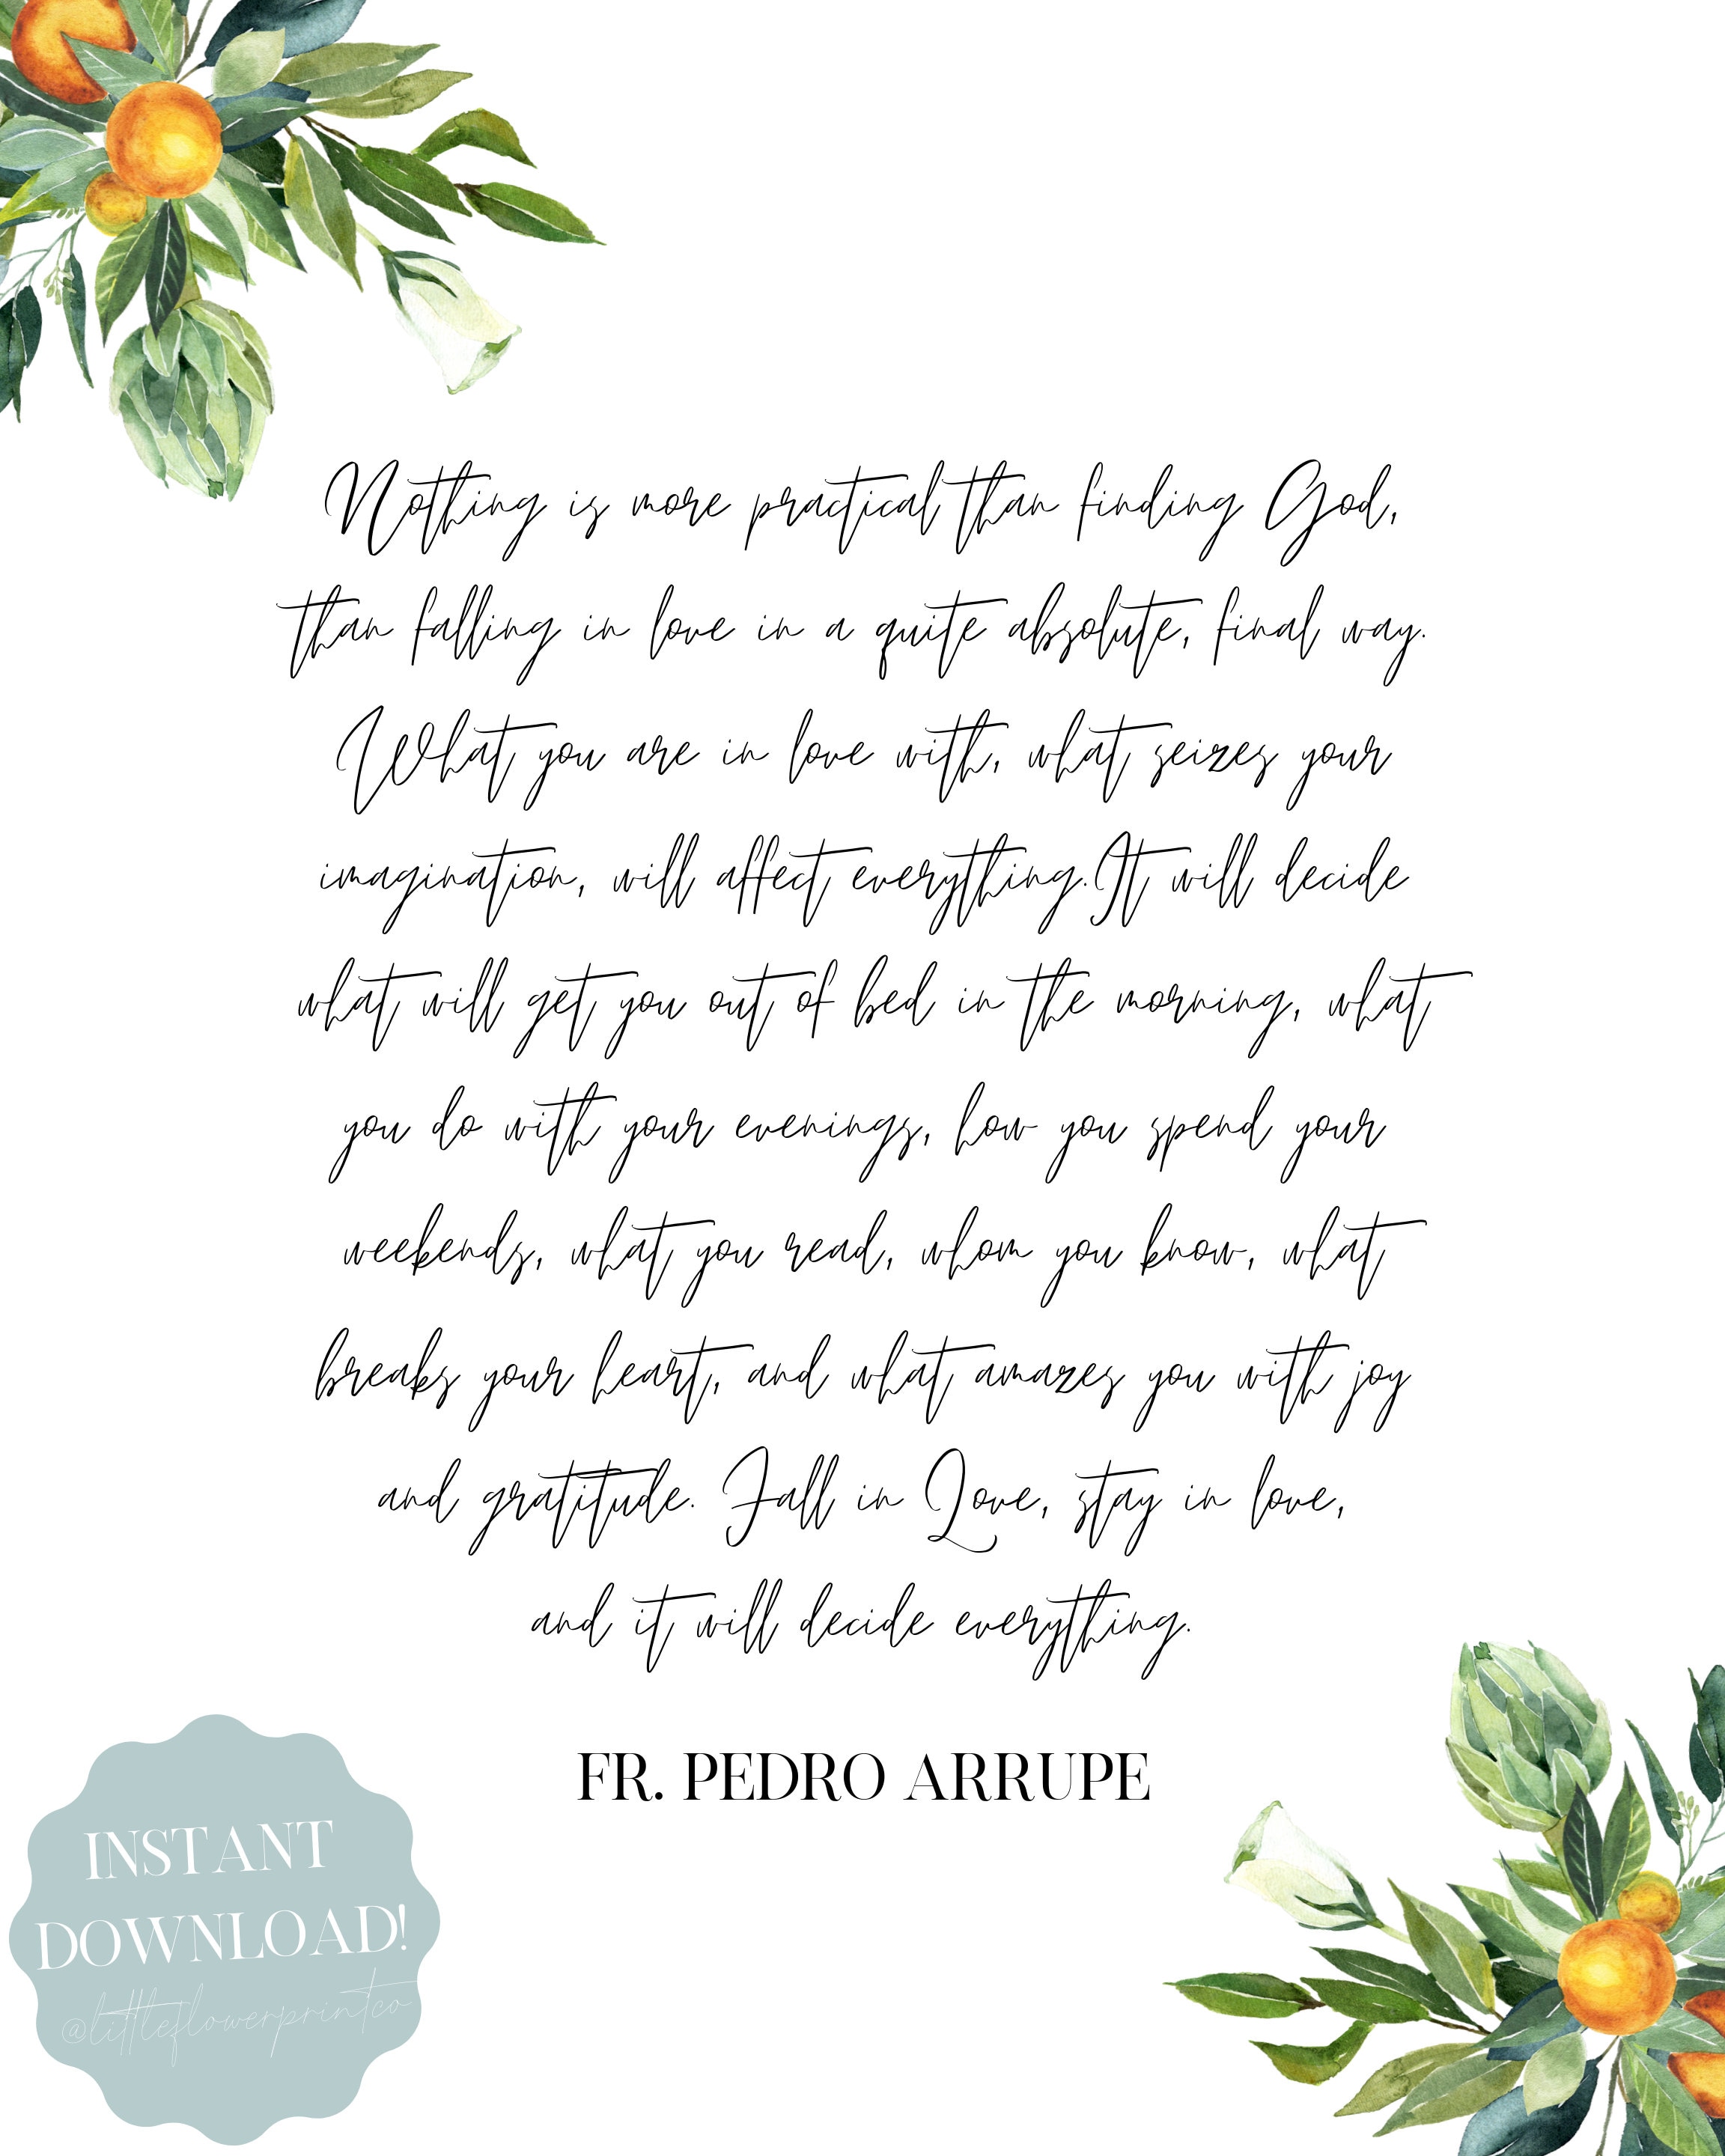 Nothing is more practical than finding God,
than falling in love in a quite absolute, final way.
What you are in love with, what seizes your
imagination, will affect everything.It will decide
what will get you out of bed in the morning, what
you do with your evenings, how you spend your
weekends, what you read, whom you know, what
breaks your heart, and what amazes you with joy
and gratitude. Fall in Love, stay in love,
and it will decide everything.
FR. PEDRO ARRUPE
INSTANT
DOWNLOAD!
@littleflowerprintco